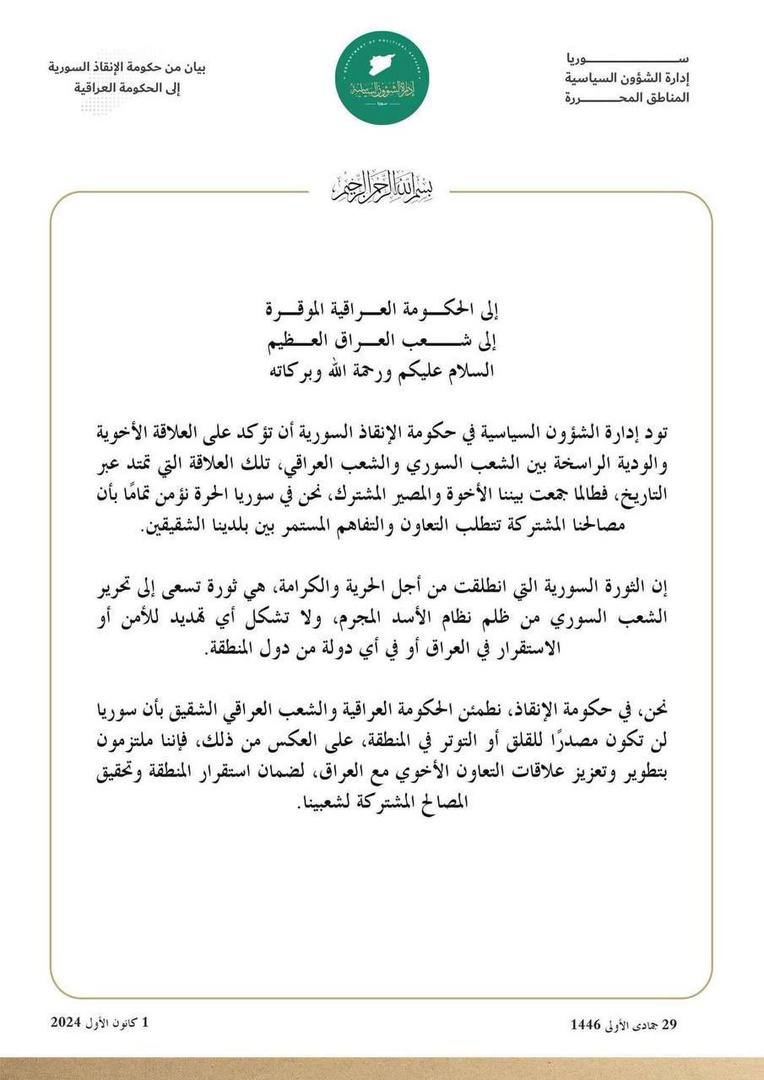 ســـــــــوريا
إدارة الشؤون السياسية
المناطق المحـــــررة
DEPARTMENT OF POLITICAL AFFAIRS
إدارة الشؤون السياسية
سوريا
بيان من حكومة الإنقاذ السورية
إلى الحكومة العراقية
بسم الله الرحمن الرحيم
إلى الحكـــومة العـــراقية الموقـــرة
إلى شـــــعب العـــراق العـــظيم
السلام عليكم ورحمة الله وبركاته
تود إدارة الشؤون السياسية في حكومة الإنقاذ السورية أن تؤكد على العلاقة الأخوية
والودية الراسخة بين الشعب السوري والشعب العراقي، تلك العلاقة التي تمتد عبر
التاريخ، فطالما جمعت بيننا الأخوة والمصير المشترك، نحن في سوريا الحرة نؤمن تمامًا بأن
مصالحنا المشتركة تتطلب التعاون والتفاهم المستمر بين بلدينا الشقيقين.
إن الثورة السورية التي انطلقت من أجل الحرية والكرامة، هي ثورة تسعى إلى تحرير
الشعب السوري من ظلم نظام الأسد المجرم، ولا تشكل أي تهديد للأمن أو
الاستقرار في العراق أو في أي دولة من دول المنطقة.
نحن، في حكومة الإنقاذ، نطمئن الحكومة العراقية والشعب العراقي الشقيق بأن سوريا
لن تكون مصدرًا للقلق أو التوتر في المنطقة، على العكس من ذلك، فإننا ملتزمون
بتطوير وتعزيز علاقات التعاون الأخوي مع العراق، لضمان استقرار المنطقة وتحقيق
المصالح المشتركة لشعبينا.
29 جمادى الأولى 1446
1 كانون الأول 2024